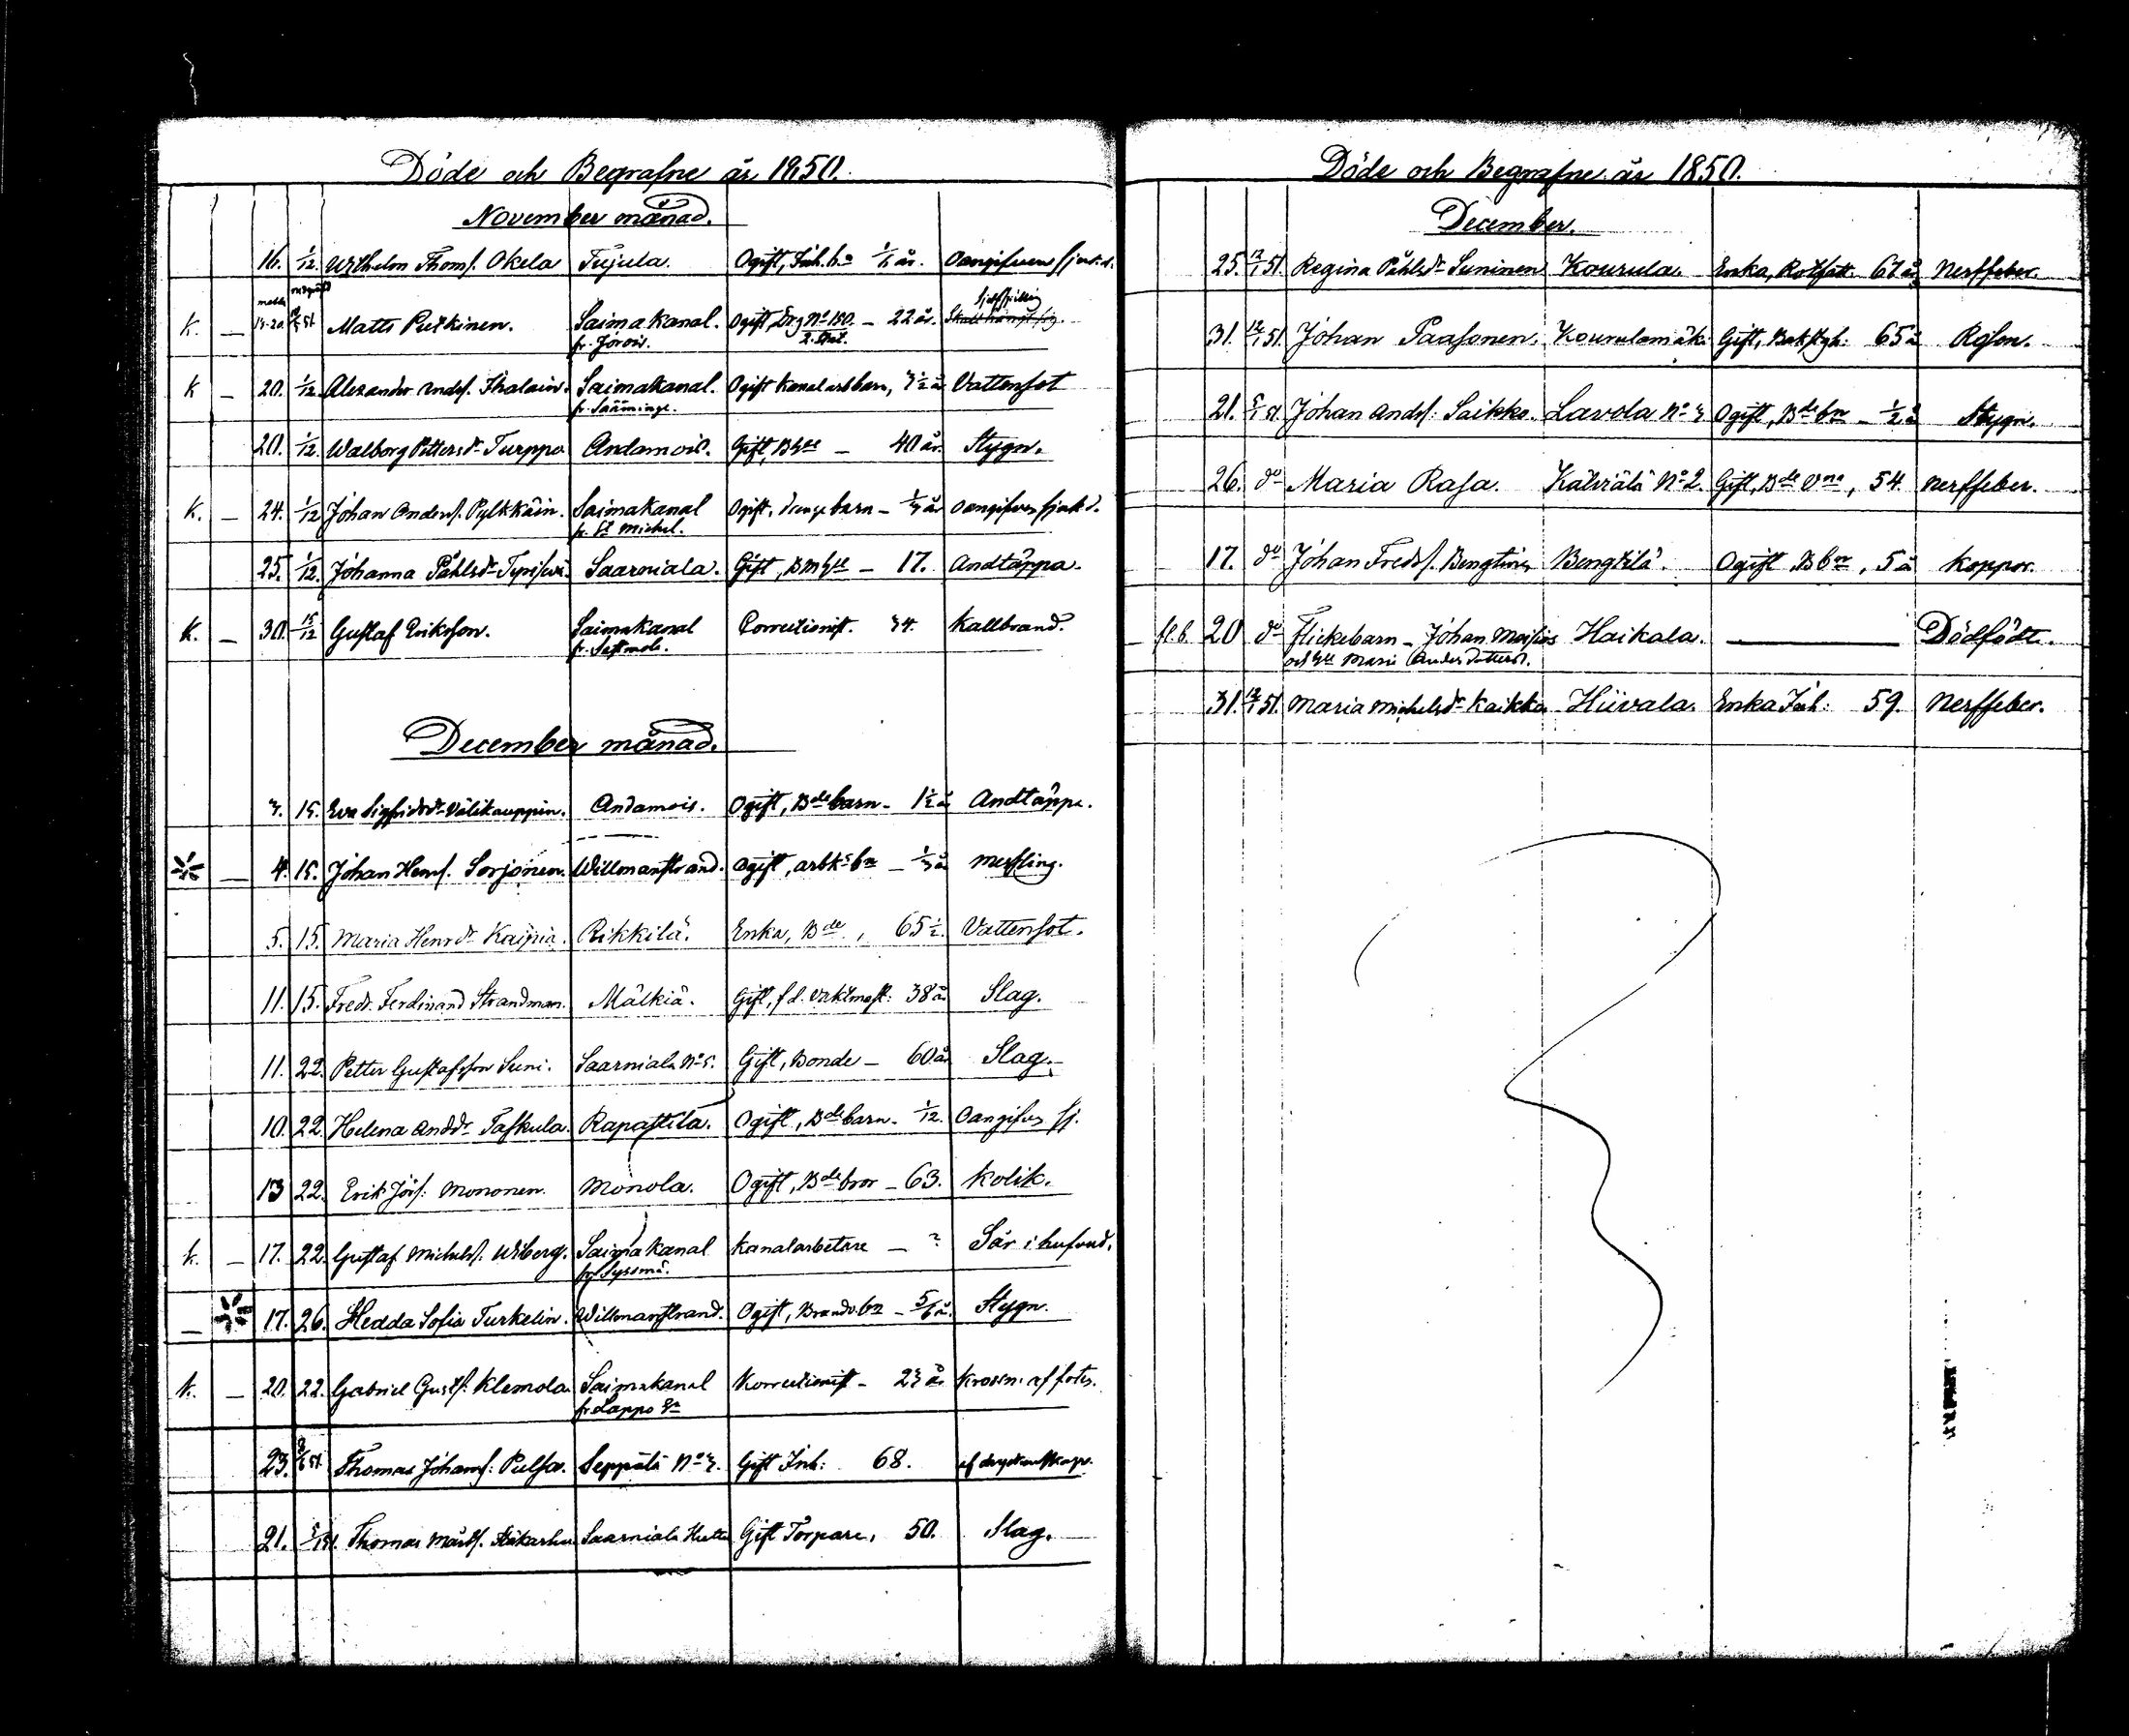 Döde och Begrafne år 1850.
November månad.
16. 1/12. Wilhelm Thoms. Okela Tujula. Ogift, Inh. bn 1/6 år. Oangifven sjukd.
K. — 19-20. Matts Putkinen. Saima Kanal. Ogift Drg No 150. — 22 år. Sjelfspilling
fr. Jorois.
K — 20. 1/12. Alexander Ands. Ihalain. Saimakanal. Ogift Kanalarb barn, 3 1/2 år Vattensot
fr. Sääminge.
20. 1/12. Walborg Pettersdr Turppa Andamois. Gift, — 40 år. Stygn.
K. — 24. 1/12 Johan Anders. Pylkkäin. Saimakanal Ogift, barn — 1/3 år oangifven sjukd.
fr. St Michel.
25. 1/12. Johanna Påhlsdr Saarniala. Gift, — 17. Andtäppa.
K. — 30. 15/12 Gustaf Eriksson. Saimakanal Correctionist. 34. Kallbrand.
fr.
December månad.
3. 15. Eva Sigfridsdr Välikauppin. Andamois. Ogift, Bde barn — 1 1/2 år Andtäppa.
— 4. 15. Johan Henrs. Sorjonen. Willmanstrand. Ogift, arbks bn — 1/3 år messling.
5. 15. Maria Henrdr Kaipia. Rikkilä. Enka, Bde, 65 1/2. Vattensot.
11. 15. Fredr. Ferdinand Strandman. Mälkiä. Gift, f d. vaktmäst: 38 år Slag.
11. 22. Petter Gustafsson Suni. Saarniala No 5. Gift, Bonde — 60 år Slag.
10. 22. Helena Anddr Taskula. Rapattila. Ogift, Bde barn. 1/12. Oangifven sj.
13 22. Erik Jörs. Mononen. Monola. Ogift, Bde bror — 63. Kolik.
k. — 17. 22. Gustaf Michels. Wiberg. Saimakanal Kanalarbetare — ? Sår i hufvud.
fr Syssmä.
— 17. 26. Hedda Sofia Turkelin. Willmanstrand. Ogift, Brandv. bn — 5/6 år. Stygn.
k. — 20. 22. Gabriel Gusts. Klemola Saimakanal Korrectionist — 23 år Krossn: af foten.
fr. Lappo
23. Thomas Johans: Pulsa. Seppälä No 3. Gift Inh: 68. af dryckenskap.
21. Thomas Mårts. Saarniala Gift Torpare, 50. Slag.
Döde och Begrafne år 1850.
December.
25. 12/1 51. Regina Påhlsdr Suninen Kourula Enka, Rothjon. 67 år Nerffeber.
31. 12/1 51. Johan Paasonen. Kourulamäki Gift, 65 år Rosen.
21. 51. Johan Ands: Saikko. Lavola No 3 Ogift, Bde bn — 1/2 år Stygn.
26. do Maria Rasa. No 2. Gift, Bde, 54. Nerffeber.
17. do Johan Freds. Bengtinen Bengtilä. Ogift, B bn, 5 år Koppor.
fl.b. 20 do Flickebarn — Johan Haikala. — Dödfödt.
och Maria Andersdotters.
31. 12/1 51. Maria Michelsdr Kaikka Hiivala. Enka Inh: 59. Nerffeber.